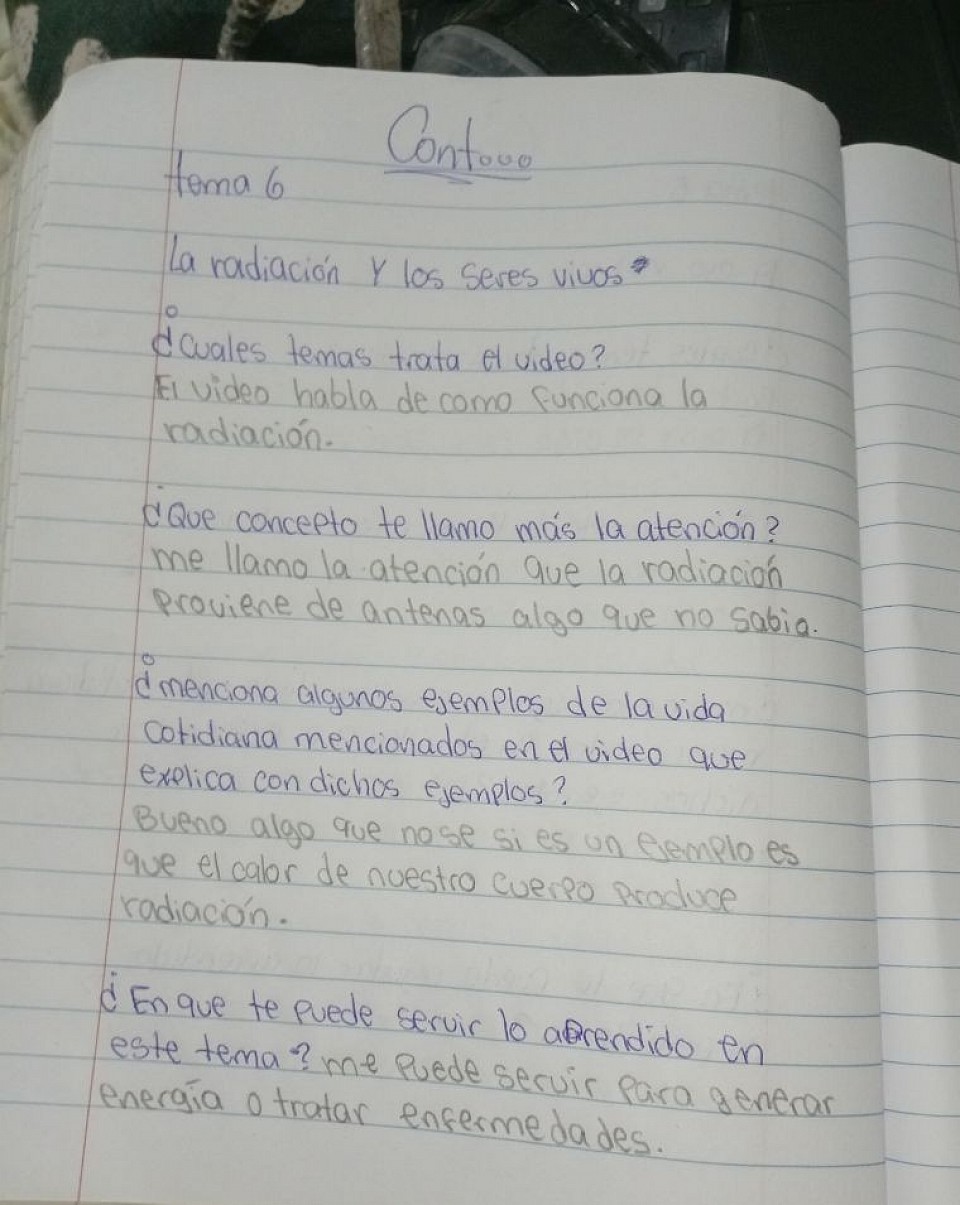 Contooo
tema 6
La radiación y los seres vivos
¿Cuales temas trata el video?
El video habla de como funciona la
radiación.
¿Que concepto te llamo más la atención?
me llamo la atención que la radiación
proviene de antenas algo que no sabia.
¿menciona algunos ejemplos de la vida
cotidiana mencionados en el video que
explica con dichos ejemplos?
Bueno algo que nose si es un ejemplo es
que el calor de nuestro cuerpo produce
radiación.
¿En que te puede servir lo aprendido en
este tema? me puede servir para generar
energía o tratar enfermedades.